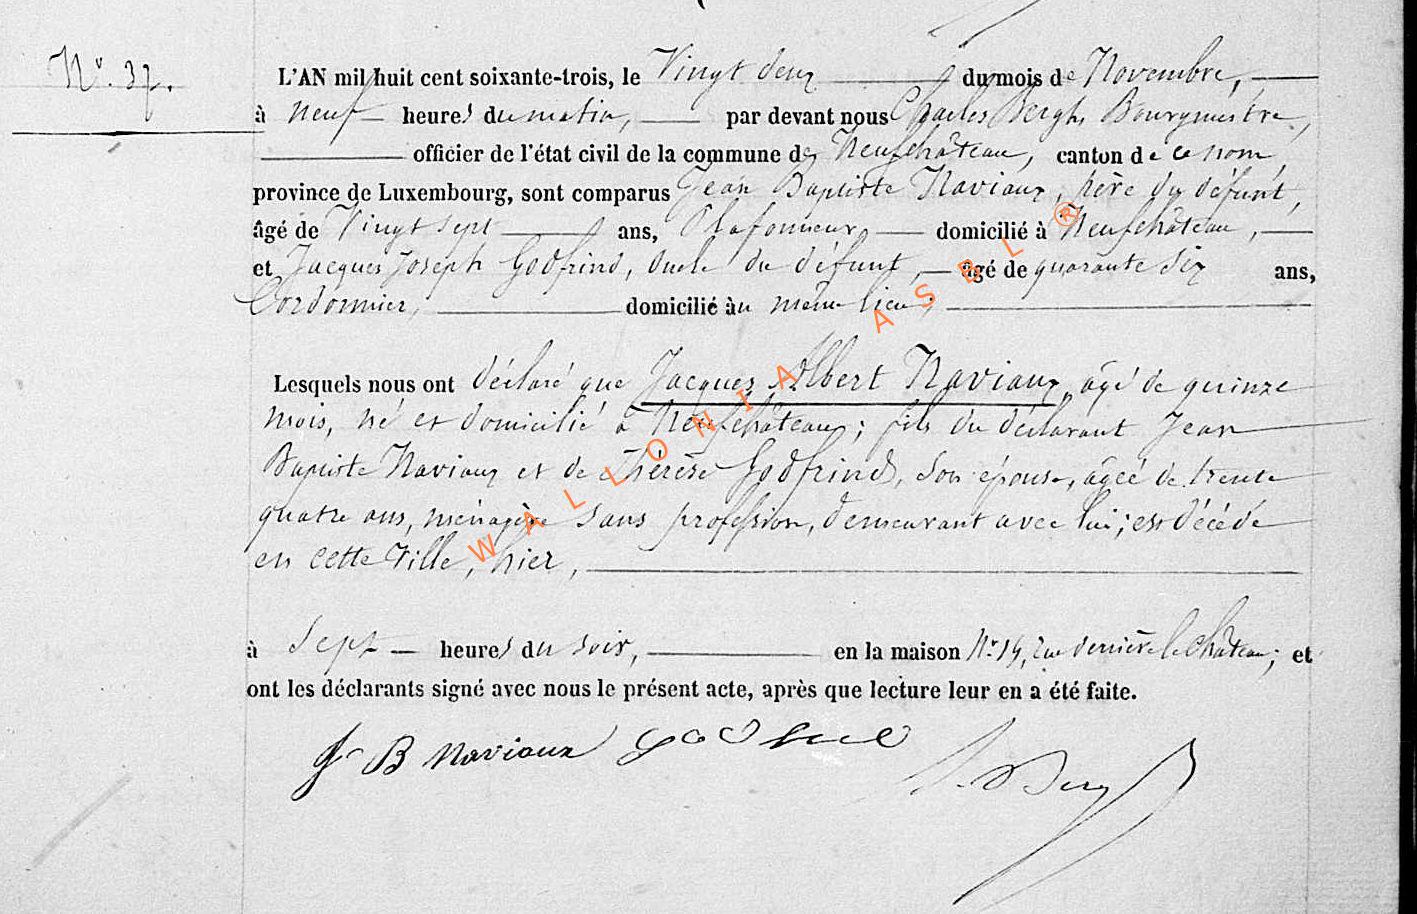 N° 37.
L'AN mil huit cent soixante-trois, le Vingt deux du mois de Novembre,
à neuf heures du matin, par devant nous Charles Bergh Bourgmestre,
officier de l'état civil de la commune de Neufchâteau, canton de ce nom,
province de Luxembourg, sont comparus Jean Baptiste Naviaux, père du défunt,
âgé de Vingt sept ans, Plafonneur, domicilié à Neufchâteau,
et Jacques Joseph Godfrind, Oncle du défunt, âgé de quarante six ans,
Cordonnier, domicilié au même lieu;
Lesquels nous ont déclaré que Jacques Albert Naviaux, âgé de quinze
mois, né et domicilié à Neufchâteau; fils du déclarant Jean
Baptiste Naviaux et de Thérèse Godfrind, son épouse, âgée de trente
quatre ans, ménagère sans profession, demeurant avec lui; est décédé
en cette Ville, hier,
à Sept heures du soir, en la maison N° 14, rue derrière le Château; et
ont les déclarants signé avec nous le présent acte, après que lecture leur en a été faite.
J B Naviaux
WALLONIA ASBL ®